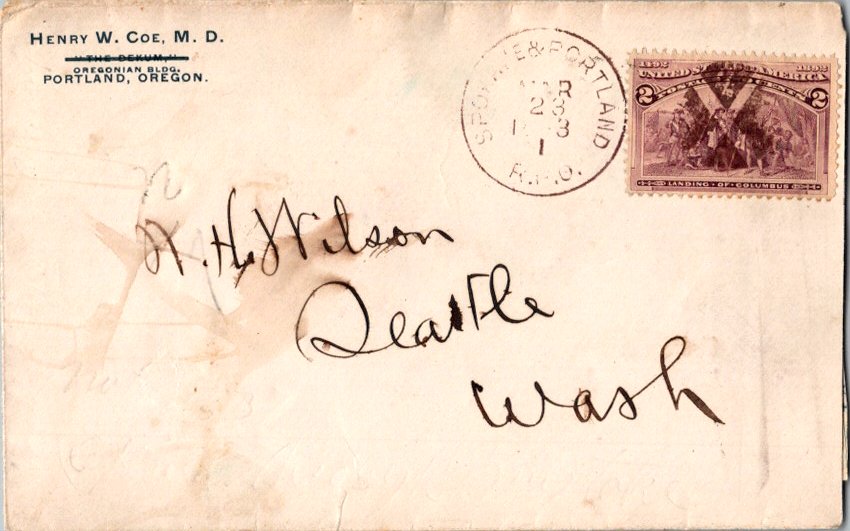 HENRY W. COE, M. D.
"THE DEKUM,"
OREGONIAN BLDG.
PORTLAND, OREGON.
& PORTLAND
MAR
23
1
R.P.O.
1492 1892
UNITED STATES OF AMERICA
2 POSTAGE TWO CENTS 2
LANDING OF COLUMBUS
H. Wilson
Seattle
Wash